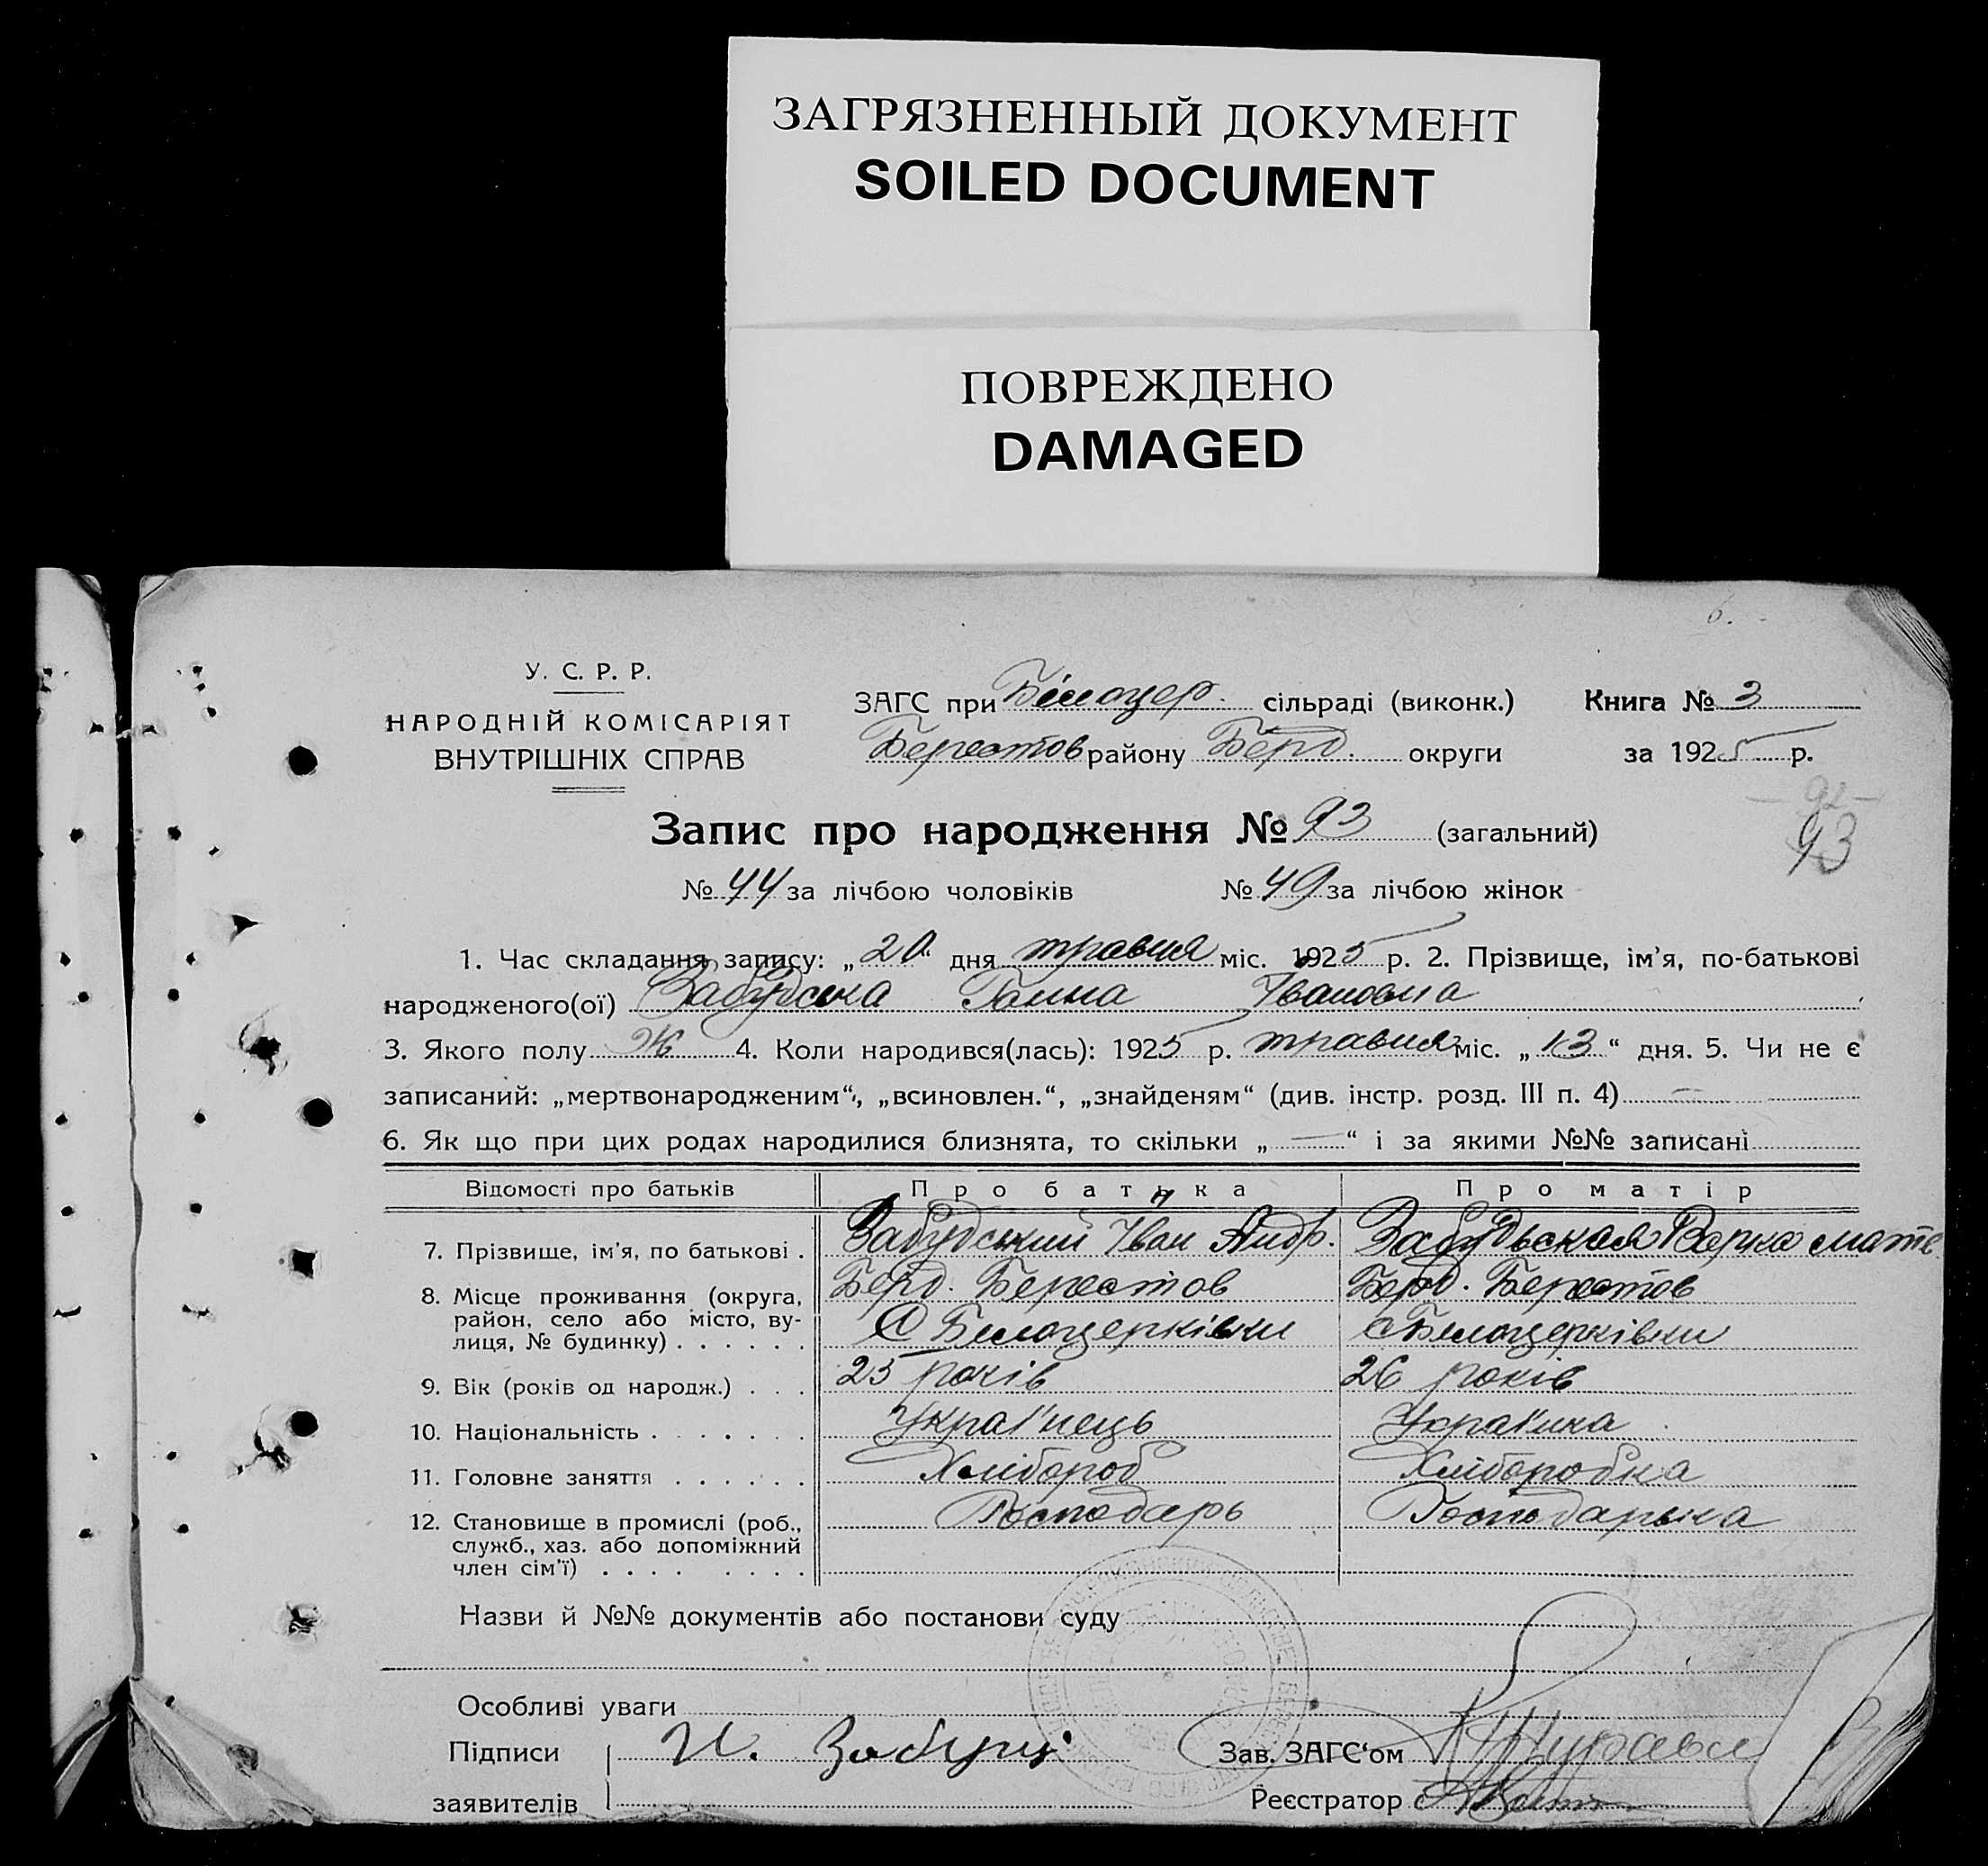 ЗАГРЯЗНЕННЫЙ ДОКУМЕНТ
SOILED DOCUMENT
ПОВРЕЖДЕНО
DAMAGED
6.
У. С. Р. Р.
НАРОДНІЙ КОМІСАРІЯТ
ВНУТРІШНІХ СПРАВ
ЗАГС при Білоцер. сільраді (виконк.) Книга № 3
Берестов району Берд. округи за 1925 р.
92
93
Запис про народження № 93 (загальний)
№ 44 за лічбою чоловіків № 49 за лічбою жінок
1. Час складання запису: „20“ дня травня міс. 1925 р. 2. Прізвище, ім'я, по-батькові
народженого(ої) Забудська Ганна Івановна
3. Якого полу Ж 4. Коли народився(лась): 1925 р. травня міс. „13“ дня. 5. Чи не є
записаний: „мертвонародженим“, „всиновлен.“, „знайденям“ (див. інстр. розд. III п. 4) —
6. Як що при цих родах народилися близнята, то скільки „—“ і за якими №№ записані
Відомості про батьків Про батька Про матір
7. Прізвище, ім'я, по батькові . Забудський Іван Андр. Забудьская Варка мате
8. Місце проживання (округа, Берд. Берестов Берд. Берестов
район, село або місто, ву-
лиця, № будинку) . . . . . . С Белоцерківки С Белоцерківки
9. Вік (років од народж.) . . . 25 років 26 років
10. Національність . . . . . . . Українець Українка
11. Головне заняття . . . . . . Хлібороб Хліборобка
12. Становище в промислі (роб., Господарь Господарька
служб., хаз. або допоміжний
член сім'ї) . . . . . . . .
Назви й №№ документів або постанови суду
Особливі уваги
Підписи И. Забуц Зав. ЗАГС'ом
заявителів Реєстратор